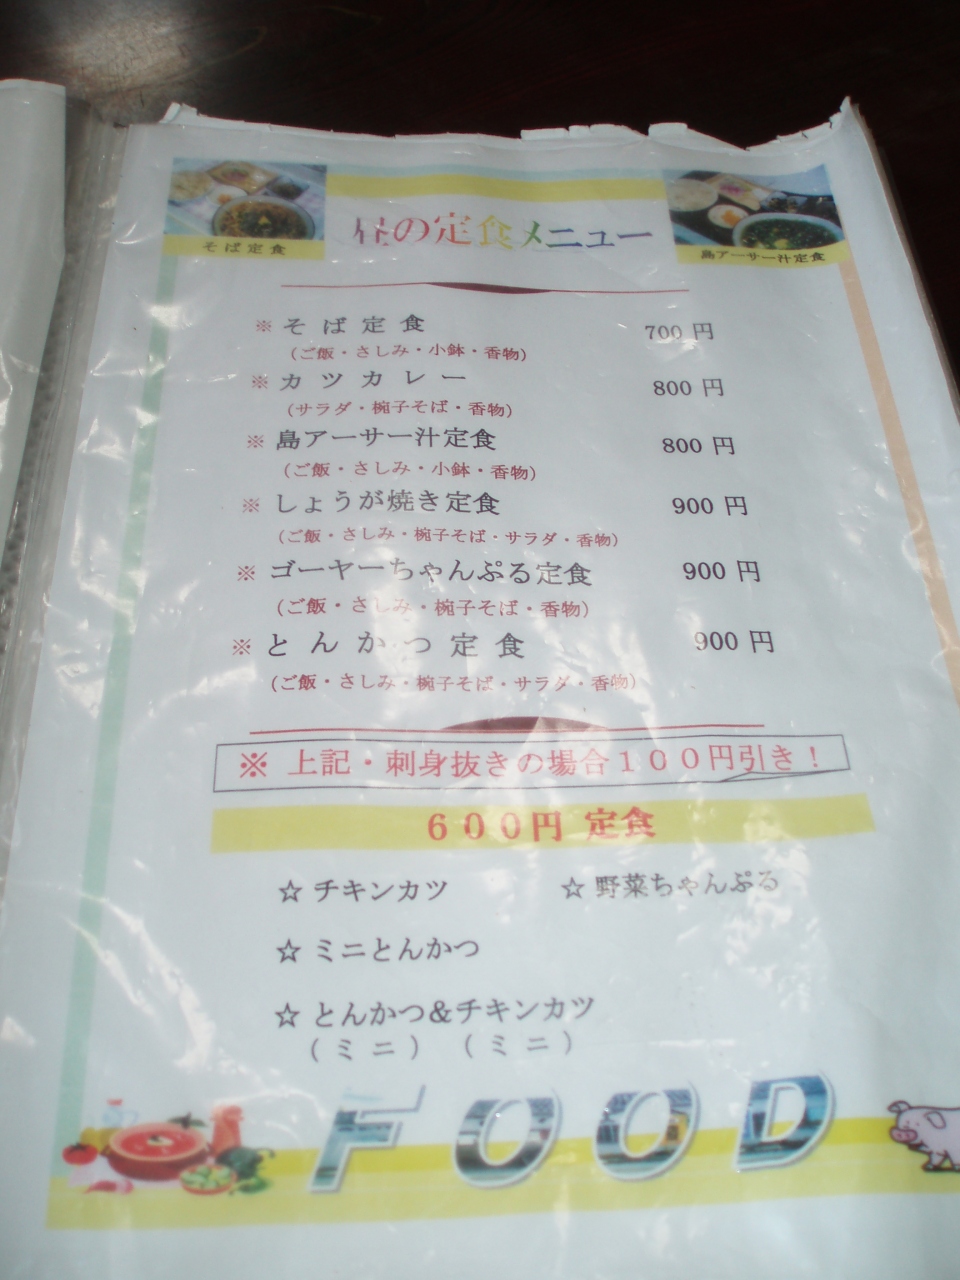 昼の定食メニュー
そば定食
島アーサー汁定食
※ そば定食 700 円
(ご飯・さしみ・小鉢・香物)
※ カツカレー 800 円
(サラダ・椀子そば・香物)
※ 島アーサー汁定食 800 円
(ご飯・さしみ・小鉢・香物)
※ しょうが焼き定食 900 円
(ご飯・さしみ・椀子そば・サラダ・香物)
※ ゴーヤーちゃんぷる定食 900 円
(ご飯・さしみ・椀子そば・香物)
※ とんかつ定食 900 円
(ご飯・さしみ・椀子そば・サラダ・香物)
※ 上記・刺身抜きの場合１００円引き！
６００円 定食
☆ チキンカツ ☆ 野菜ちゃんぷる
☆ ミニとんかつ
☆ とんかつ&チキンカツ
(ミニ) (ミニ)
FOOD